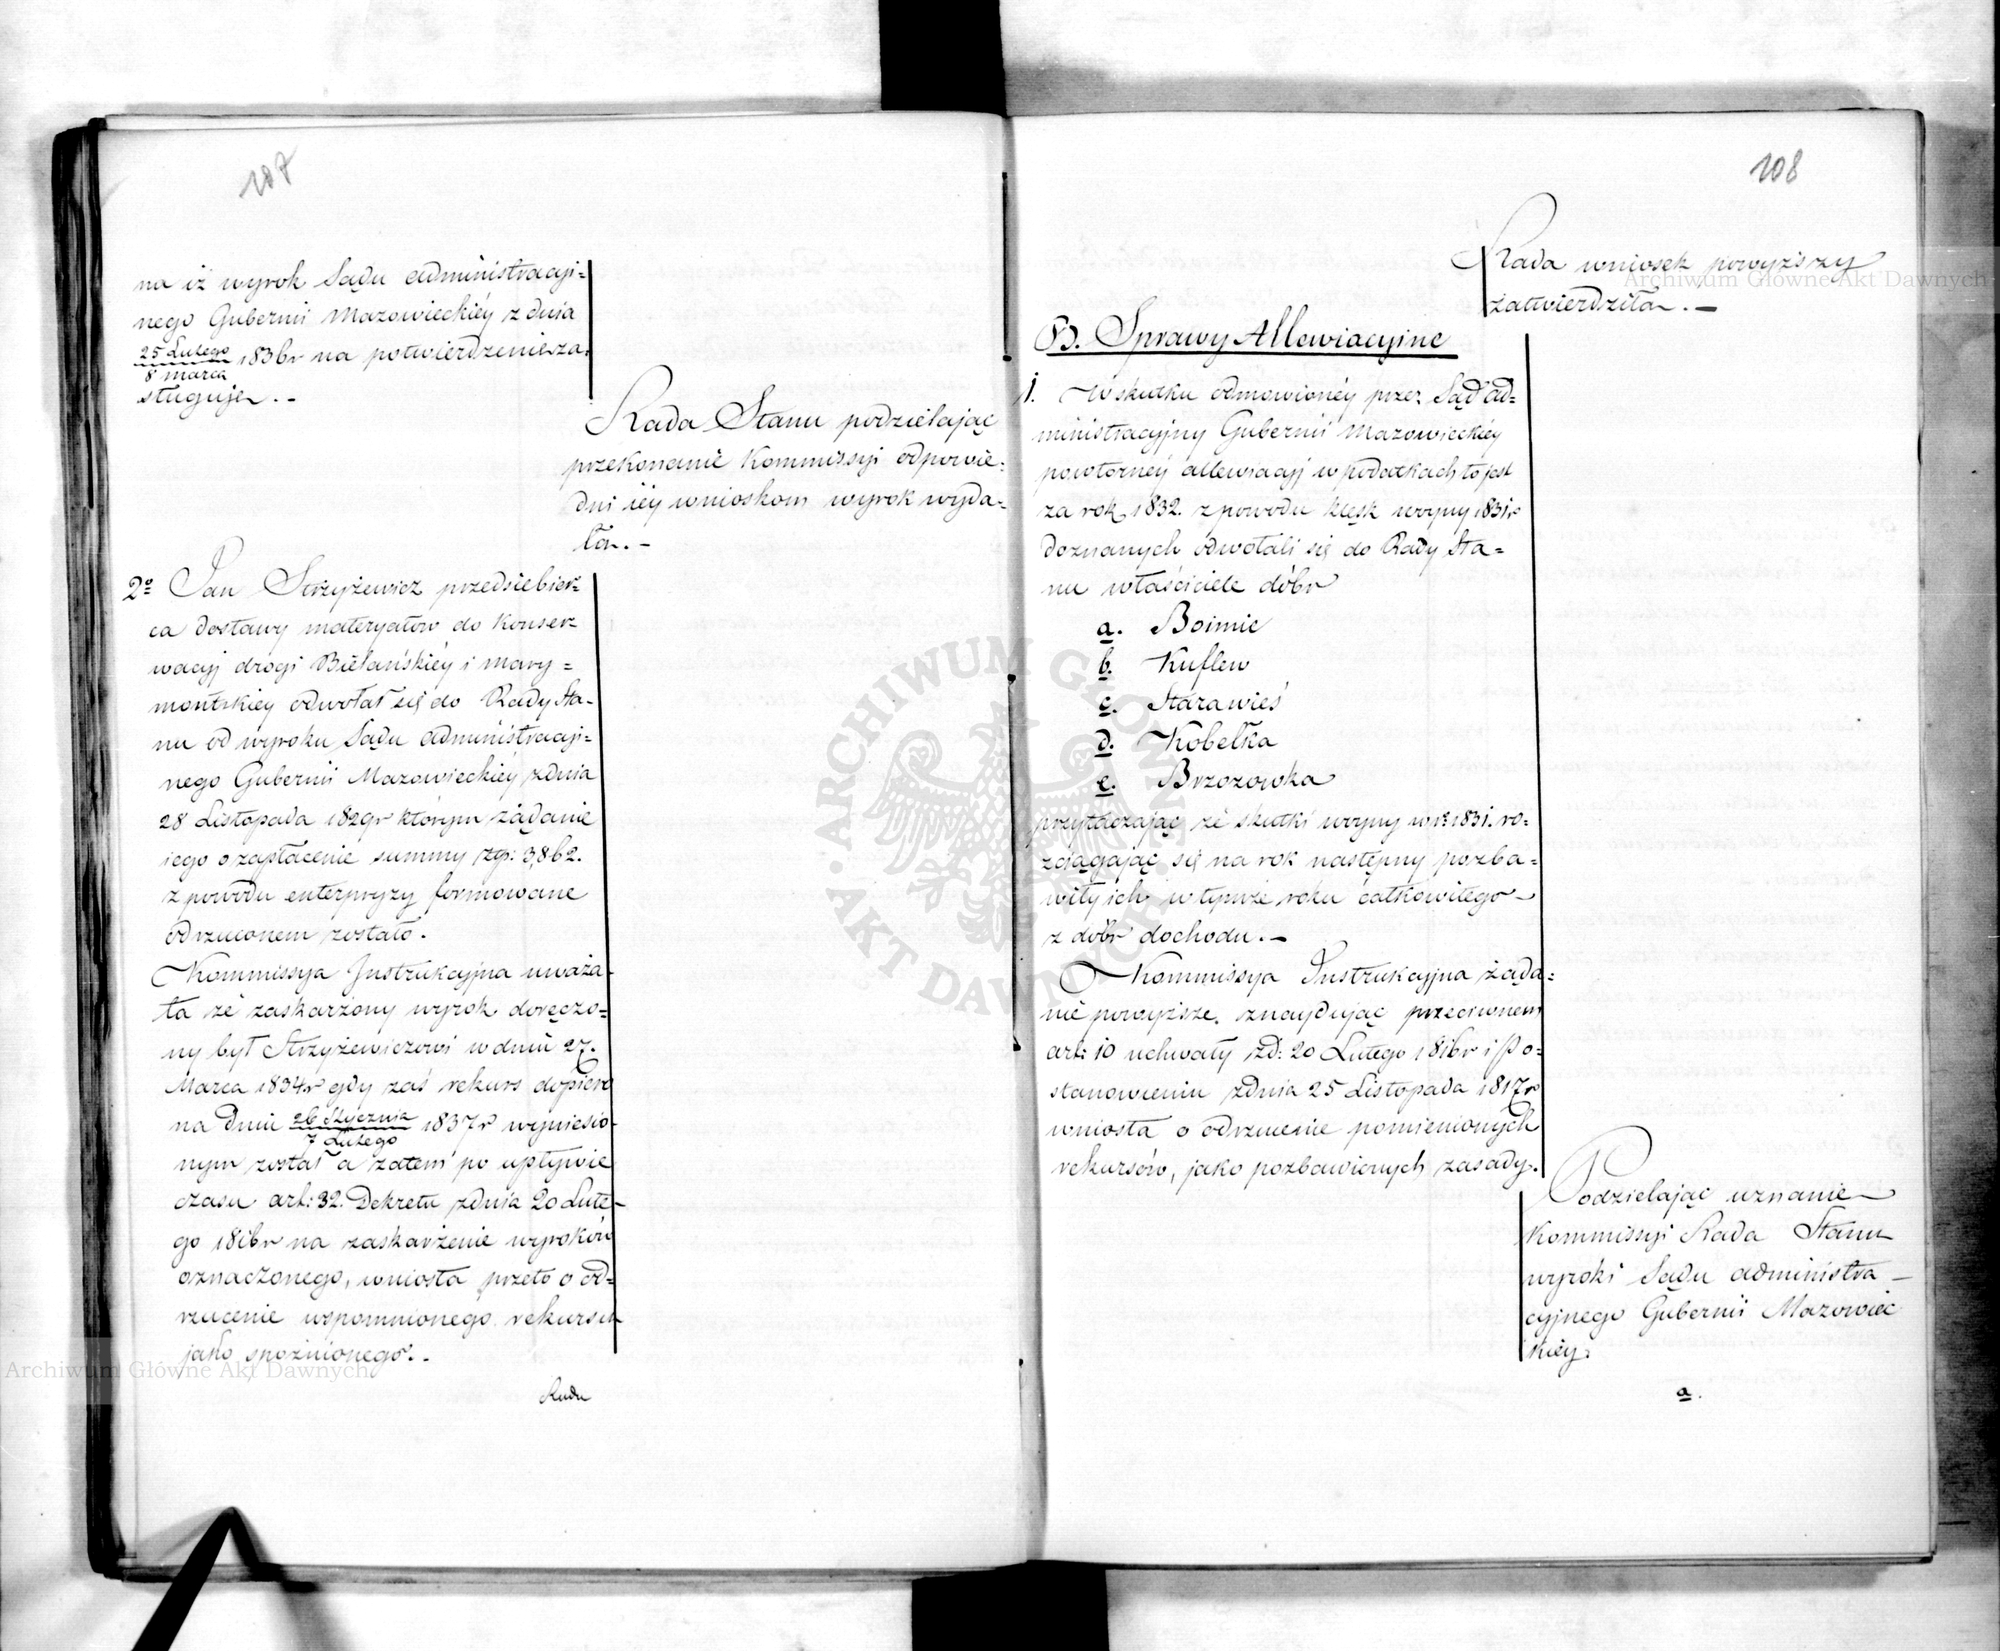 107
na iż wyrok Sądu administracyi=
nego Gubernii Mazowieckiéy z dnia
25 Lutego / 8 marca 1836r na potwierdzenie za=
sługuje. –
Rada Stanu podzielając
przekonanie Kommissyi odpowie=
dni iéy wnioskom wyrok wyda=
ła. –
2º Jan Strzyżewicz przedsiebier=
ca dostawy materyałów do konser=
wacyj drogi Bielańskiéy i mary=
montskiey odwołał się do Rady Sta=
nu od wyroku Sądu administracyi=
nego Gubernii Mazowieckiéy z dnia
28 Listopada 1829r którym żądanie
iego o zapłacenie summy zp: 3,862.
z powodu enterpryzy formowane
odrzuconem zostało.
Kommissya Instrukcyjna uważa=
ła że zaskarżony wyrok doręczo=
ny był Strzyżewiczowi w dniu 27.
Marca 1834r gdy zaś rekurs dopiero
na dniu 26 Stycznia / 7 Lutego 1837r wyniesio=
nym został a zatem po upływie
czasu art: 32. Dekretu z dnia 20 Lute=
go 1816r na zaskarżenie wyroków
oznaczonego, wniosła przeto o od=
rzucenie wspomnionego rekursu
jako spoźnionego. –
Rada
108
Rada wniosek powyższy
zatwierdziła. –
B. Sprawy Allewiacyine
1. W skutku odmowionéy przez Sąd ad=
ministracyjny Gubernii Mazowieckiéy
powtórnéy allewiacyj w podatkach to jest
za rok 1832. z powodu klęsk woyny 1831r
doznanych odwołali się do Rady Sta=
nu właściciele dóbr
a. Boimie
b. Kuflew
c. Starawieś
d. Kobełka
e. Brzozowka
przytaczając że skutki woyny w r: 1831. ro=
zciągając się na rok następny pozba=
wiły ich w tymże roku całkowitego
z dóbr dochodu. –
Kommissya Instrukcyjna żąda=
nie powyższe, znayduiąc przeciwnem
art: 10 uchwały zd: 20 Lutego 1816r i Po=
stanowieniu z dnia 25 Listopada 1817r
wniosła o odrzucenie pomienionych
rekursów, jako pozbawionych zasady.
Podzielając uznanie
Kommissyi Rada Stanu
wyroki Sądu administra=
cyjnego Gubernii Mazowiec
kiéy:
a.
Archiwum Główne Akt Dawnych
Archiwum Główne Akt Dawnych
ARCHIWUM GŁÓWNE AKT DAWNYCH